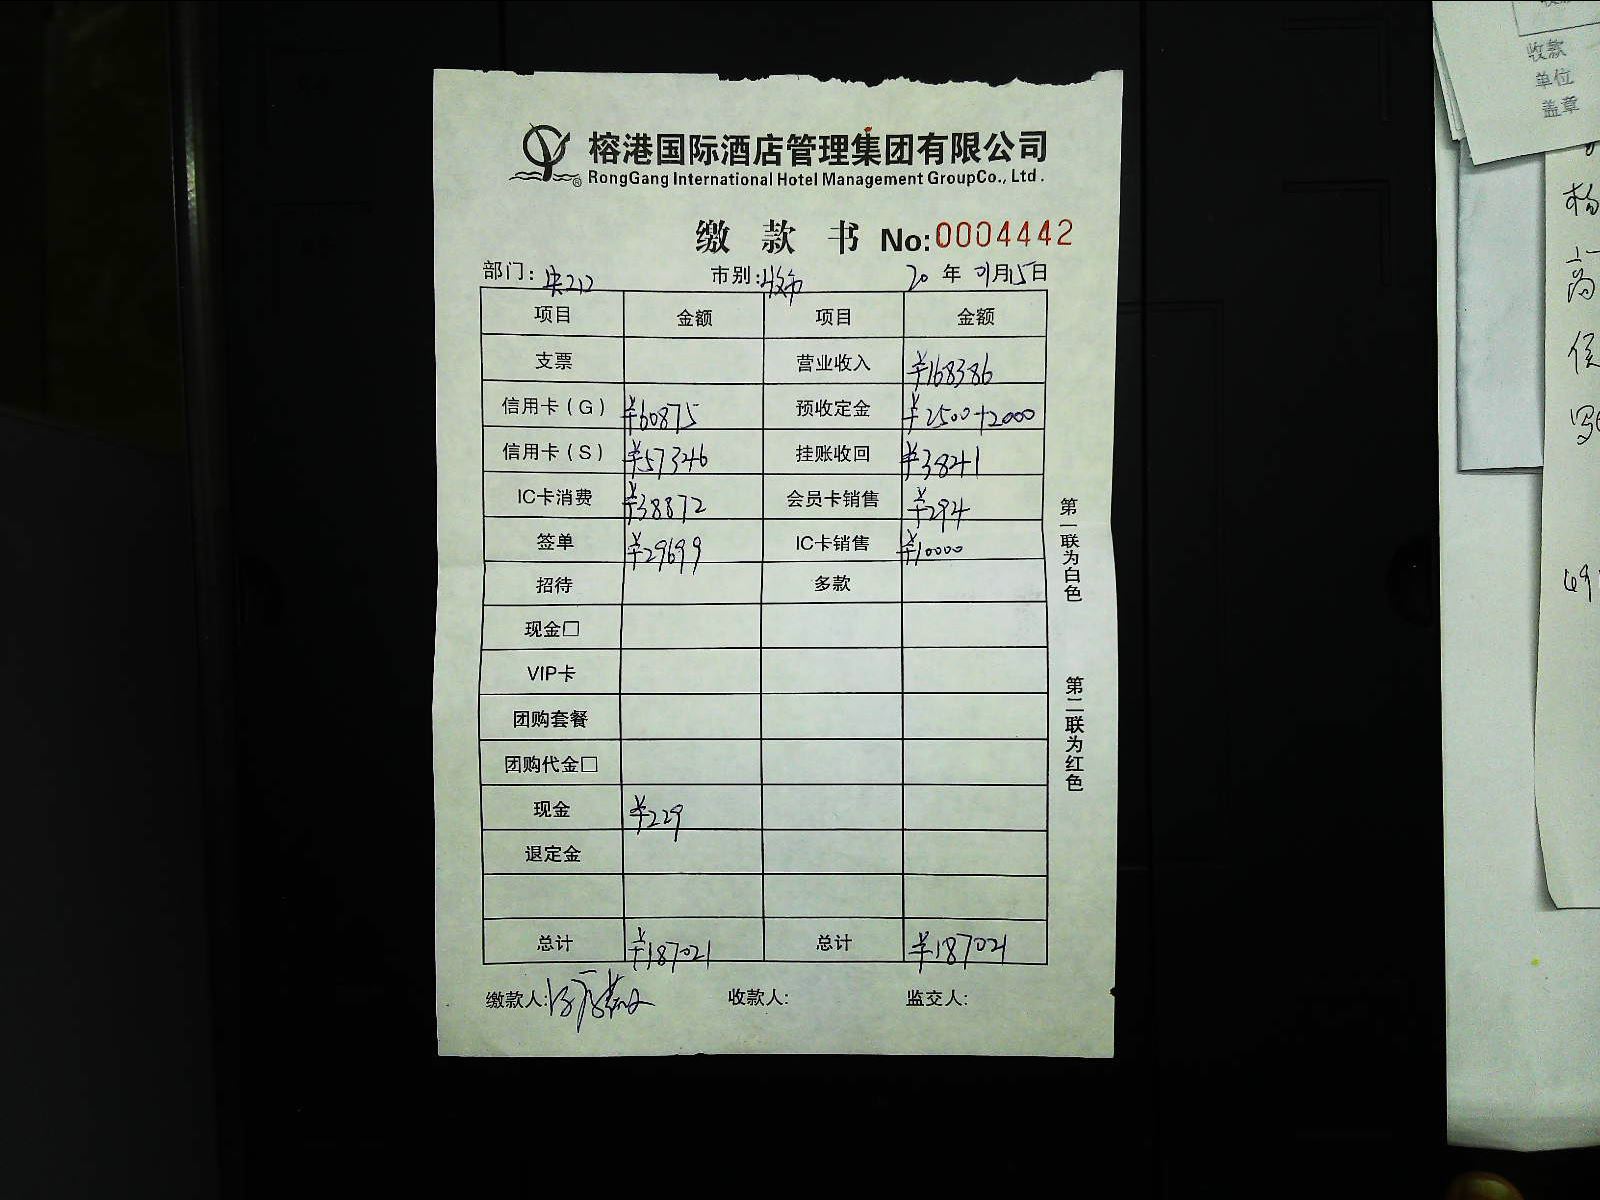 收款
单位
盖章
榕港国际酒店管理集团有限公司
® RongGang International Hotel Management GroupCo., Ltd.
缴款书 No:0004442
部门: 市别: 20年01月15日
项目 金额 项目 金额
支票 营业收入 ¥168386
信用卡(G) ¥60875 预收定金 ¥2500+2000
信用卡(S) ¥57346 挂账收回 ¥3841
IC卡消费 ¥38872 会员卡销售 ¥294
签单 ¥29699 IC卡销售 ¥10000
招待 多款
现金□
VIP卡
团购套餐
团购代金□
现金 ¥229
退定金
总计 ¥187021 总计 ¥187021
缴款人: 收款人: 监交人:
第一联为白色
第二联为红色